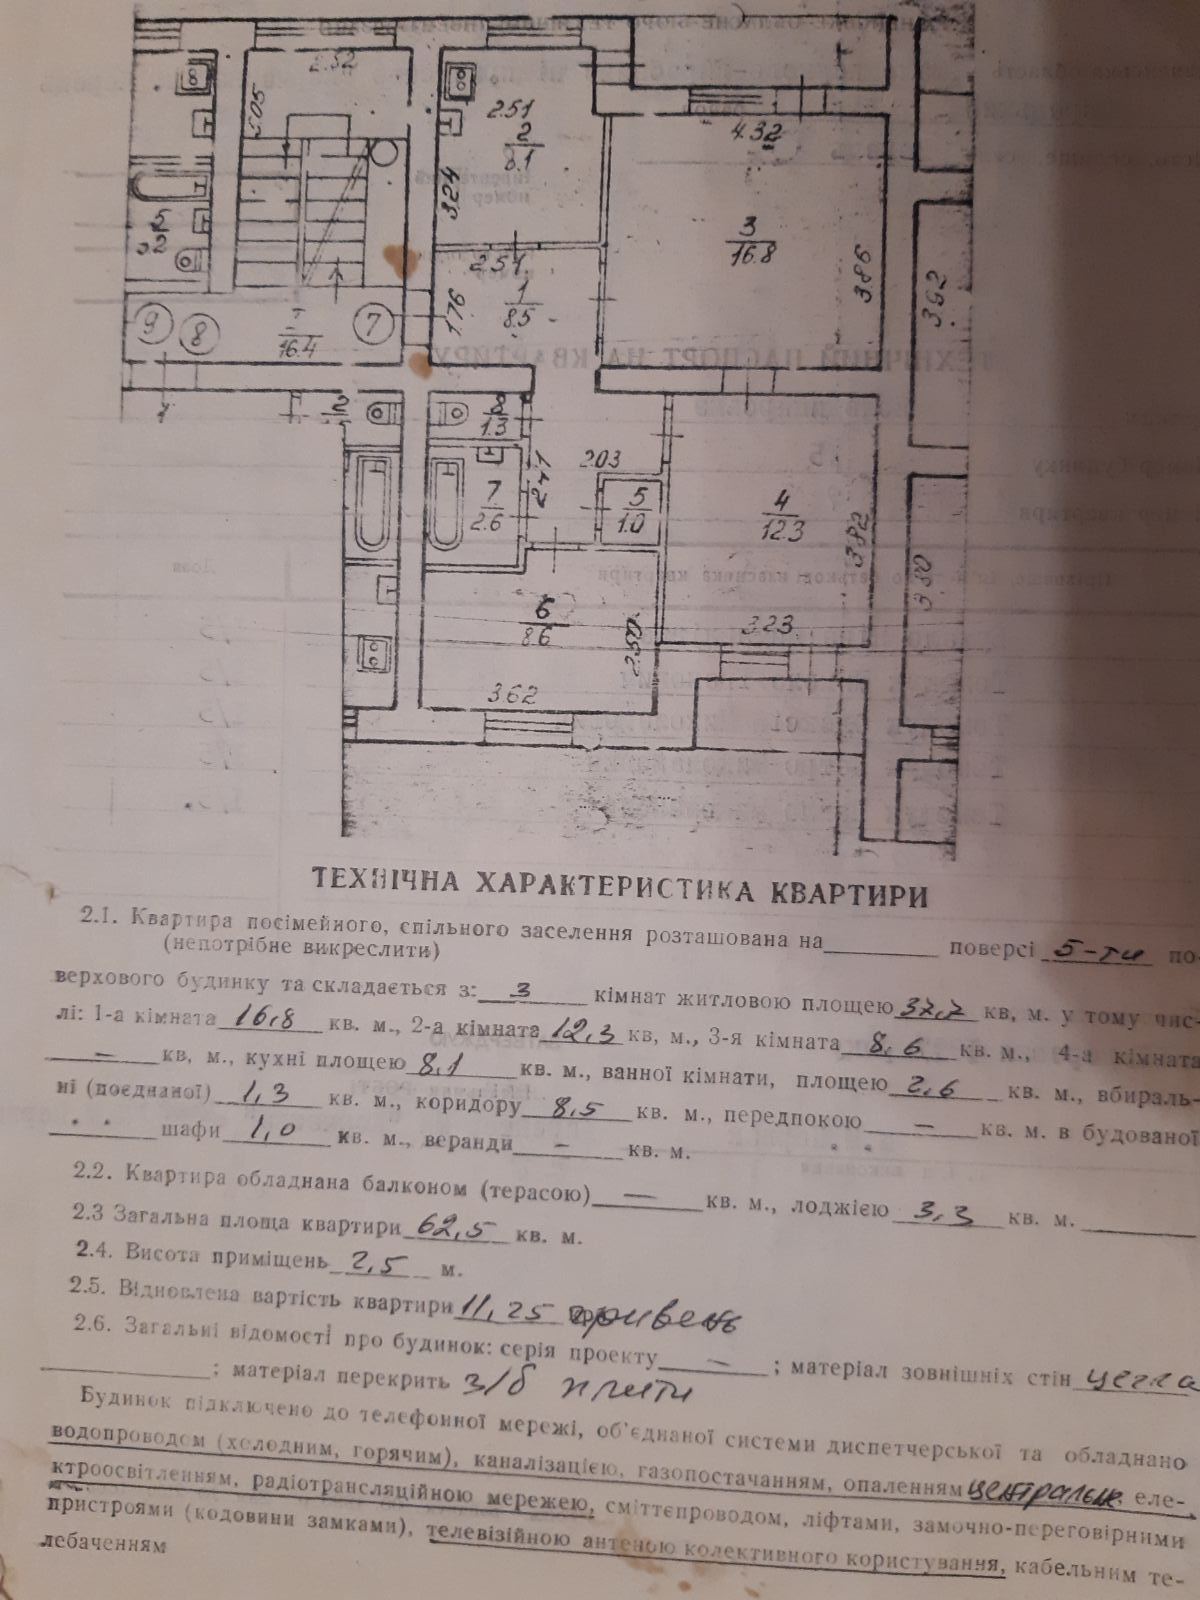 2.52
5.05
2.51
2
8.1
4.32
3.24
3
16.8
3.86
3.92
5
3.2
2.51
1
8.5
1.76
9
8
7
I
16.4
1
2
8
1.3
2.03
2.41
7
2.6
5
1.0
4
12.3
3.82
3.30
6
8.6
2.50
3.23
3.62
ТЕХНІЧНА ХАРАКТЕРИСТИКА КВАРТИРИ
2.1. Квартира посімейного, спільного заселення розташована на поверсі 5-ти по-
(непотрібне викреслити)
верхового будинку та складається з: 3 кімнат житловою площею 37,7 кв, м. у тому чис-
лі: 1-а кімната 16,8 кв. м., 2-а кімната 12,3 кв, м., 3-я кімната 8,6 кв. м., 4-а кімната
— кв, м., кухні площею 8,1 кв. м., ванної кімнати, площею 2,6 кв. м., вбираль-
ні (поєднаної) 1,3 кв. м., коридору 8,5 кв. м., передпокою — кв. м. в будованої
шафи 1,0 кв. м., веранди — кв. м.
2.2. Квартира обладнана балконом (терасою) — кв. м., лоджією 3,3 кв. м.
2.3 Загальна площа квартири 62,5 кв. м.
2.4. Висота приміщень 2,5 м.
2.5. Відновлена вартість квартири 11,25 гривень
2.6. Загальні відомості про будинок: серія проекту — ; матеріал зовнішніх стін цегла
; матеріал перекрить з/б плити
Будинок підключено до телефонної мережі, об'єднаної системи диспетчерської та обладнано
водопроводом (холодним, горячим), каналізацією, газопостачанням, опаленням центральне, еле-
ктроосвітленням, радіотрансляційною мережею, сміттєпроводом, ліфтами, замочно-переговірними
пристроями (кодовини замками), телевізійною антеною колективного користування, кабельним те-
лебаченням